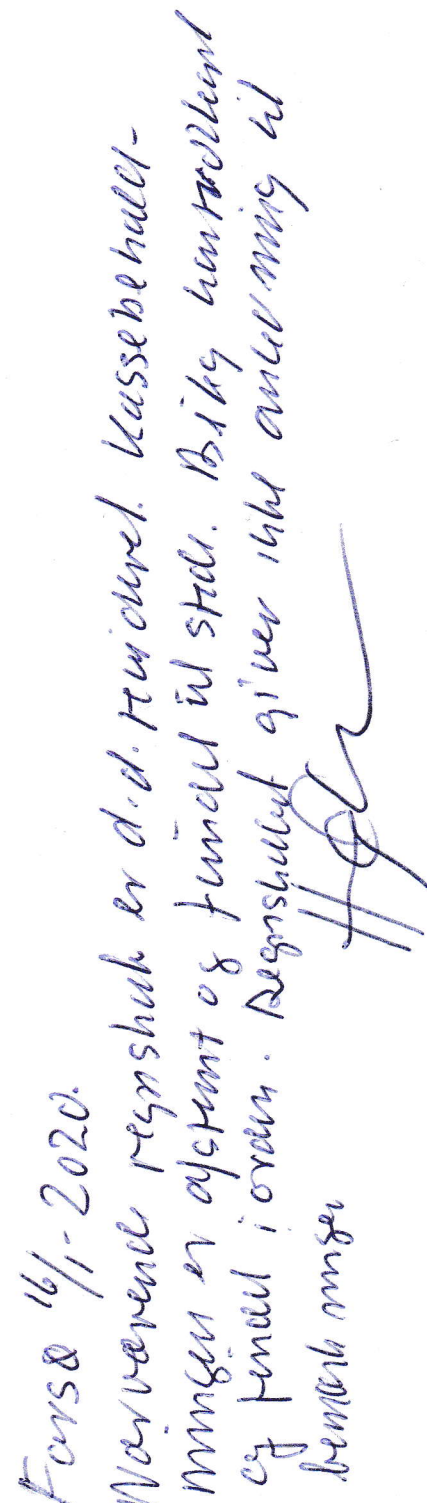 Forsø 16/1-2020.
Nærværende regnskab er d.d. revideret. Kassebehold-
ningen er afstemt og fundet til stede. Bilag kontrolleret
og fundet i orden. Regnskabet giver ikke anledning til
bemærkninger